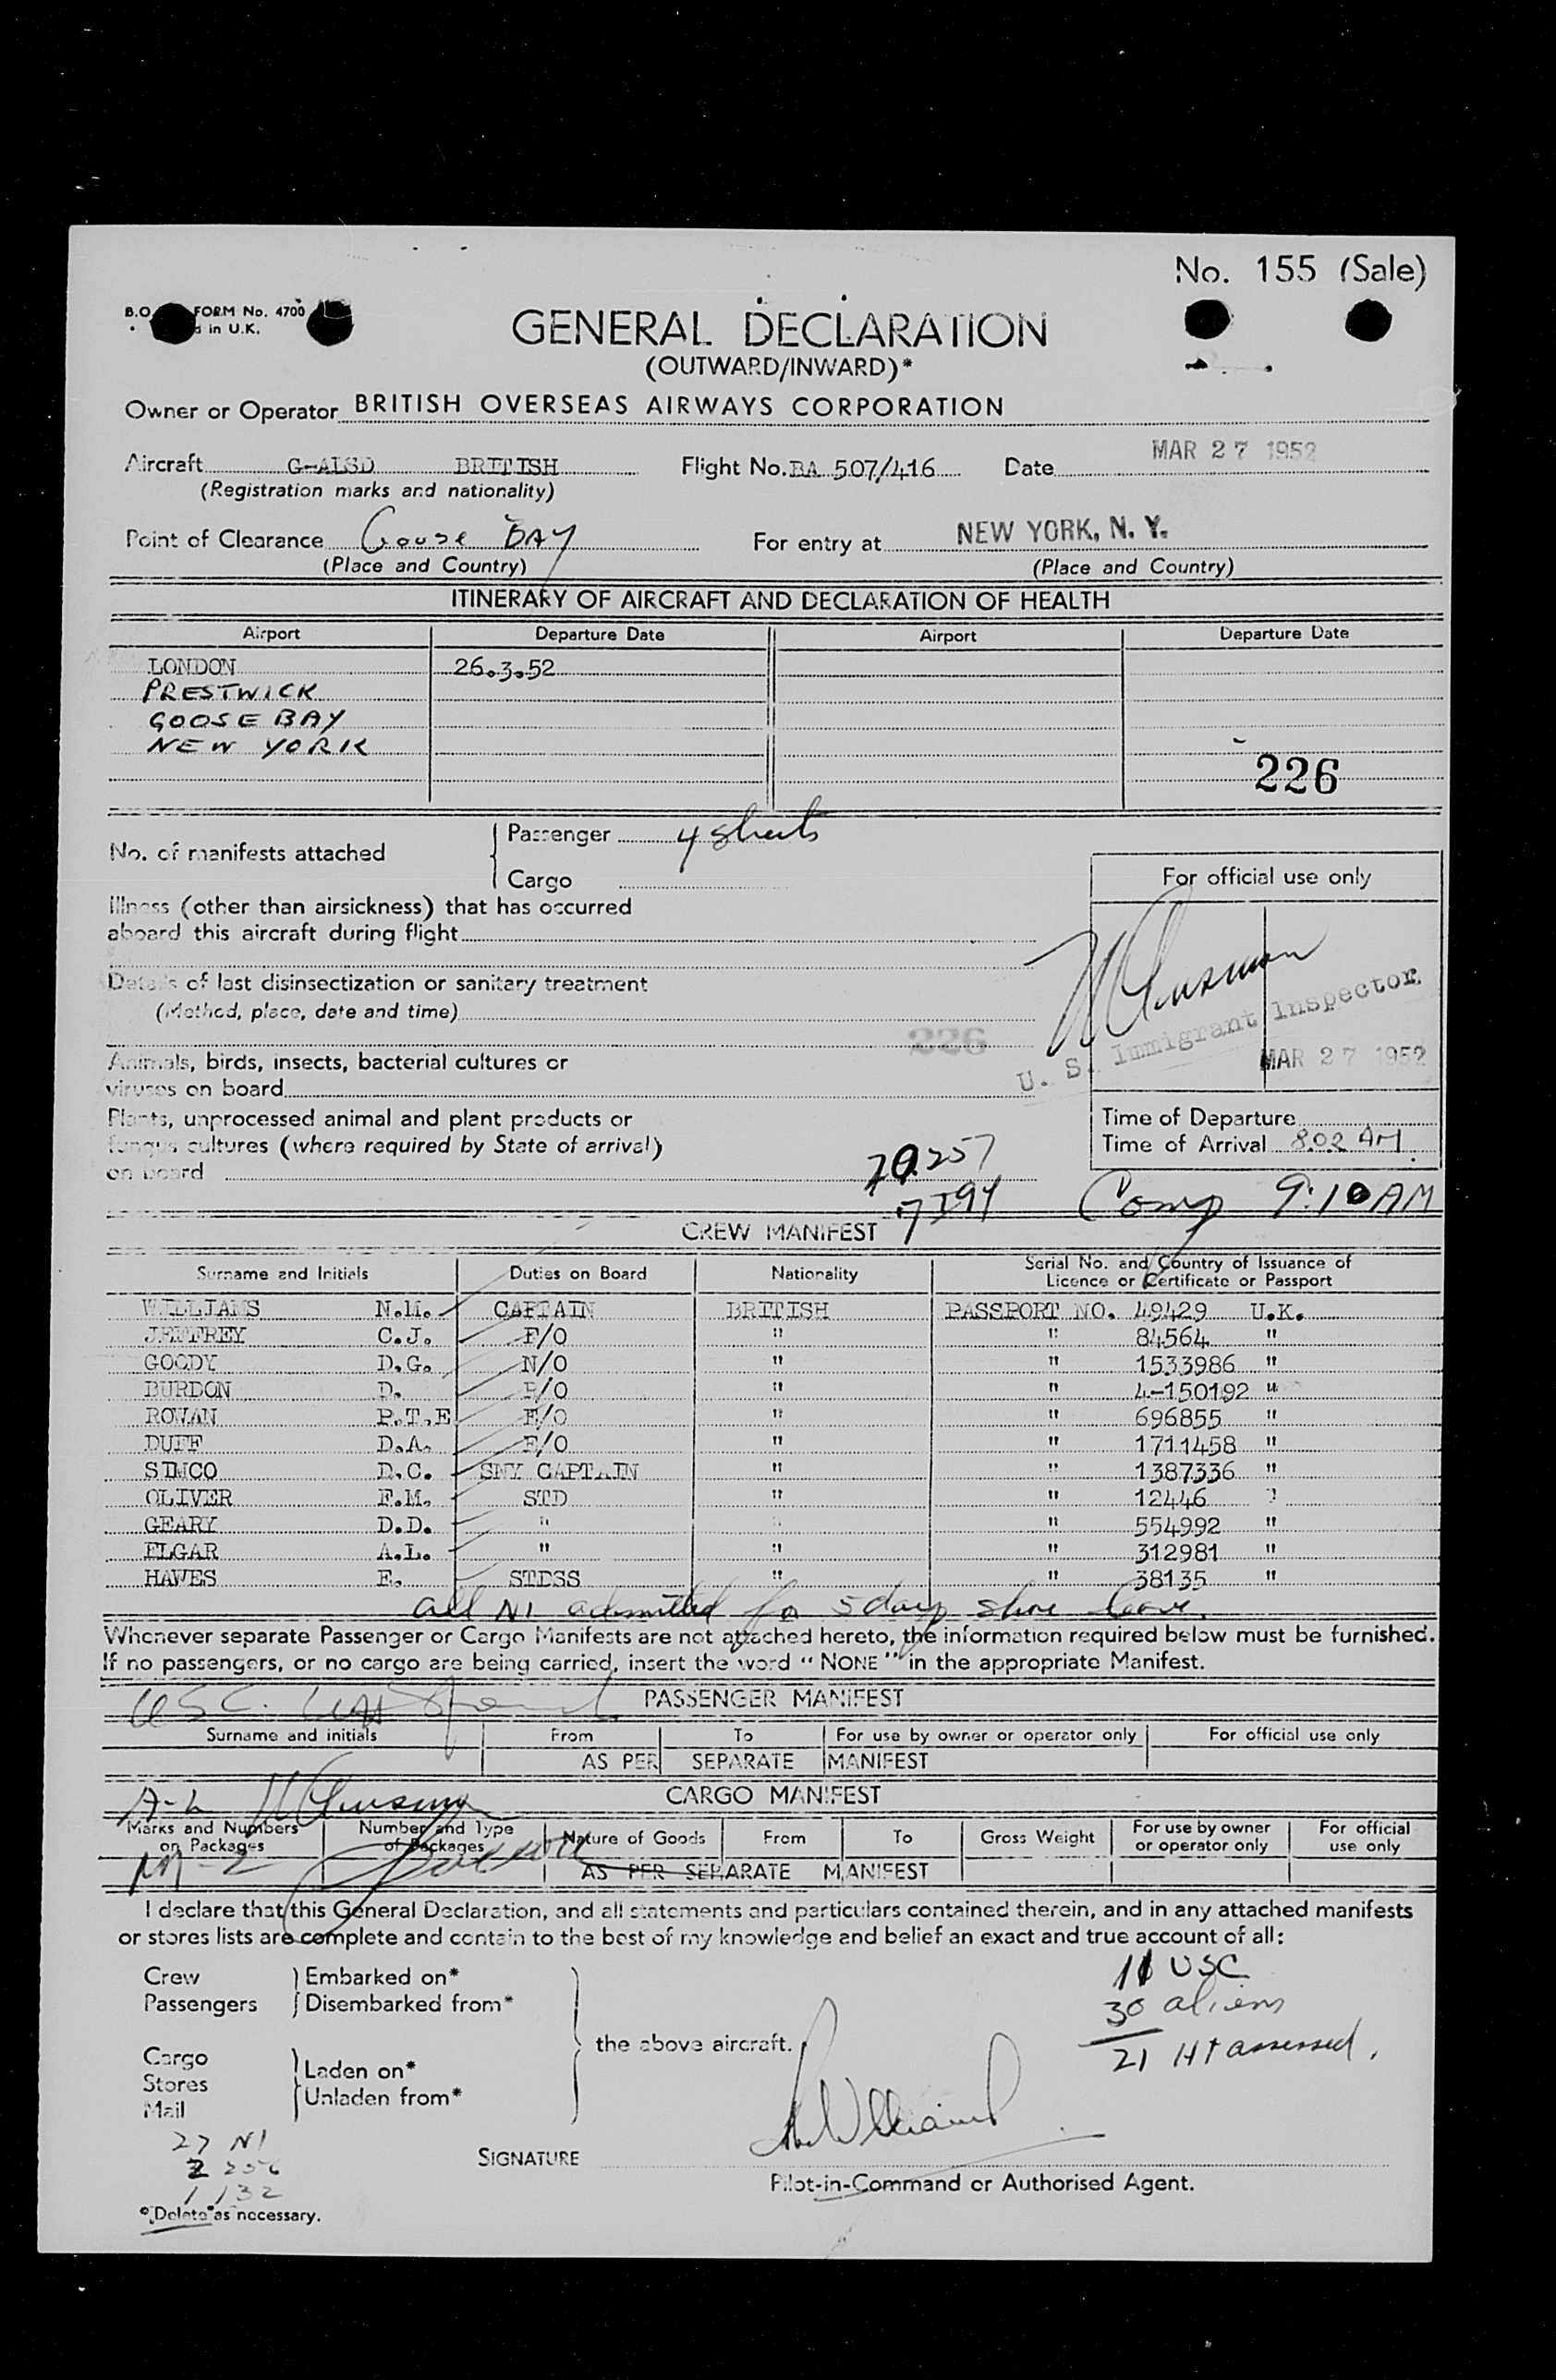 No. 155 (Sale)
B.O. FORM No. 4700
in U.K.
GENERAL DECLARATION
(OUTWARD/INWARD)*
Owner or Operator BRITISH OVERSEAS AIRWAYS CORPORATION
Aircraft G-ALSD BRITISH Flight No. BA 507/416 Date MAR 27 1952
(Registration marks and nationality)
Point of Clearance Goose BAY For entry at NEW YORK, N. Y.
(Place and Country) (Place and Country)
ITINERARY OF AIRCRAFT AND DECLARATION OF HEALTH
Airport Departure Date Airport Departure Date
LONDON 26.3.52
PRESTWICK
GOOSE BAY
NEW YORK
226
No. of manifests attached
Passenger 4 sheets
Cargo
For official use only
Illness (other than airsickness) that has occurred
aboard this aircraft during flight
Details of last disinsectization or sanitary treatment
(Method, place, date and time)
226
U. S. Immigrant Inspector
MAR 27 1952
Animals, birds, insects, bacterial cultures or
viruses on board
Plants, unprocessed animal and plant products or
fungus cultures (where required by State of arrival)
on board
Time of Departure
Time of Arrival 8.02 AM
Comp 9:10 AM
CREW MANIFEST
Surname and Initials Duties on Board Nationality Serial No. and Country of Issuance of
Licence or Certificate or Passport
WILLIAMS N.M. CAPTAIN BRITISH PASSPORT NO. 49429 U.K.
JEFFREY C.J. F/O " " 84564 "
GOODY D.G. N/O " " 1533986 "
BURDON D. R/O " " 4-150192 "
ROWAN P.T.E E/O " " 696855 "
DUFF D.A. E/O " " 1711458 "
SIMCO D.C. SNY CAPTAIN " " 1387336 "
OLIVER F.M. STD " " 12446
GEARY D.D. " " " 554992 "
ELGAR A.L. " " " 312981 "
HAWES E. STDSS " " 38135 "
all NI admitted for 5 days shore leave.
Whenever separate Passenger or Cargo Manifests are not attached hereto, the information required below must be furnished.
If no passengers, or no cargo are being carried, insert the word "NONE" in the appropriate Manifest.
USC
PASSENGER MANIFEST
Surname and initials From To For use by owner or operator only For official use only
AS PER SEPARATE MANIFEST
A-2
CARGO MANIFEST
Marks and Numbers on Packages Number and Type of Packages Nature of Goods From To Gross Weight For use by owner or operator only For official use only
M-2
AS PER SEPARATE MANIFEST
I declare that this General Declaration, and all statements and particulars contained therein, and in any attached manifests
or stores lists are complete and contain to the best of my knowledge and belief an exact and true account of all:
Crew
Passengers
Embarked on*
Disembarked from*
11 USC
30 aliens
21 Ht assessed.
the above aircraft.
Cargo
Stores
Mail
Laden on*
Unladen from*
27 NI
SIGNATURE
Pilot-in-Command or Authorised Agent.
*Delete as necessary.